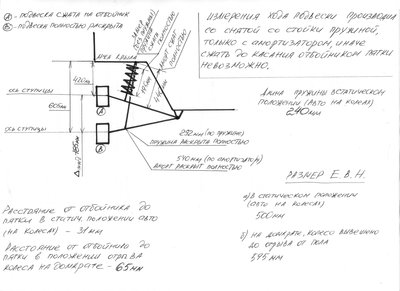 Ⓐ - подвеска сжата на отбойник
Ⓑ - подвеска полностью раскрыта
Измерения хода подвески производил
со снятой со стойки пружиной,
только с амортизатором, иначе
сжать до касания отбойником пятки
невозможно.
арка крыла
420мм
605мм
ось ступицы
ось ступицы
Ⓐ
Ⓑ
185мм
Длина пружины в статическом
положении (авто на колесах)
240мм
292мм (по пружине)
пружина раскрыта полностью
540мм (по амортизатору)
аморт раскрыт полностью
Размер Е.В.Н.
а) в статическом положении
(авто на колесах)
500мм
б) на домкрате, колесо вывешено
до отрыва от пола
595мм
Расстояние от отбойника до
пятки в статич. положении авто
(на колесах) - 31мм
Расстояние от отбойника до
пятки в положении отрыва
колеса на домкрате - 65мм